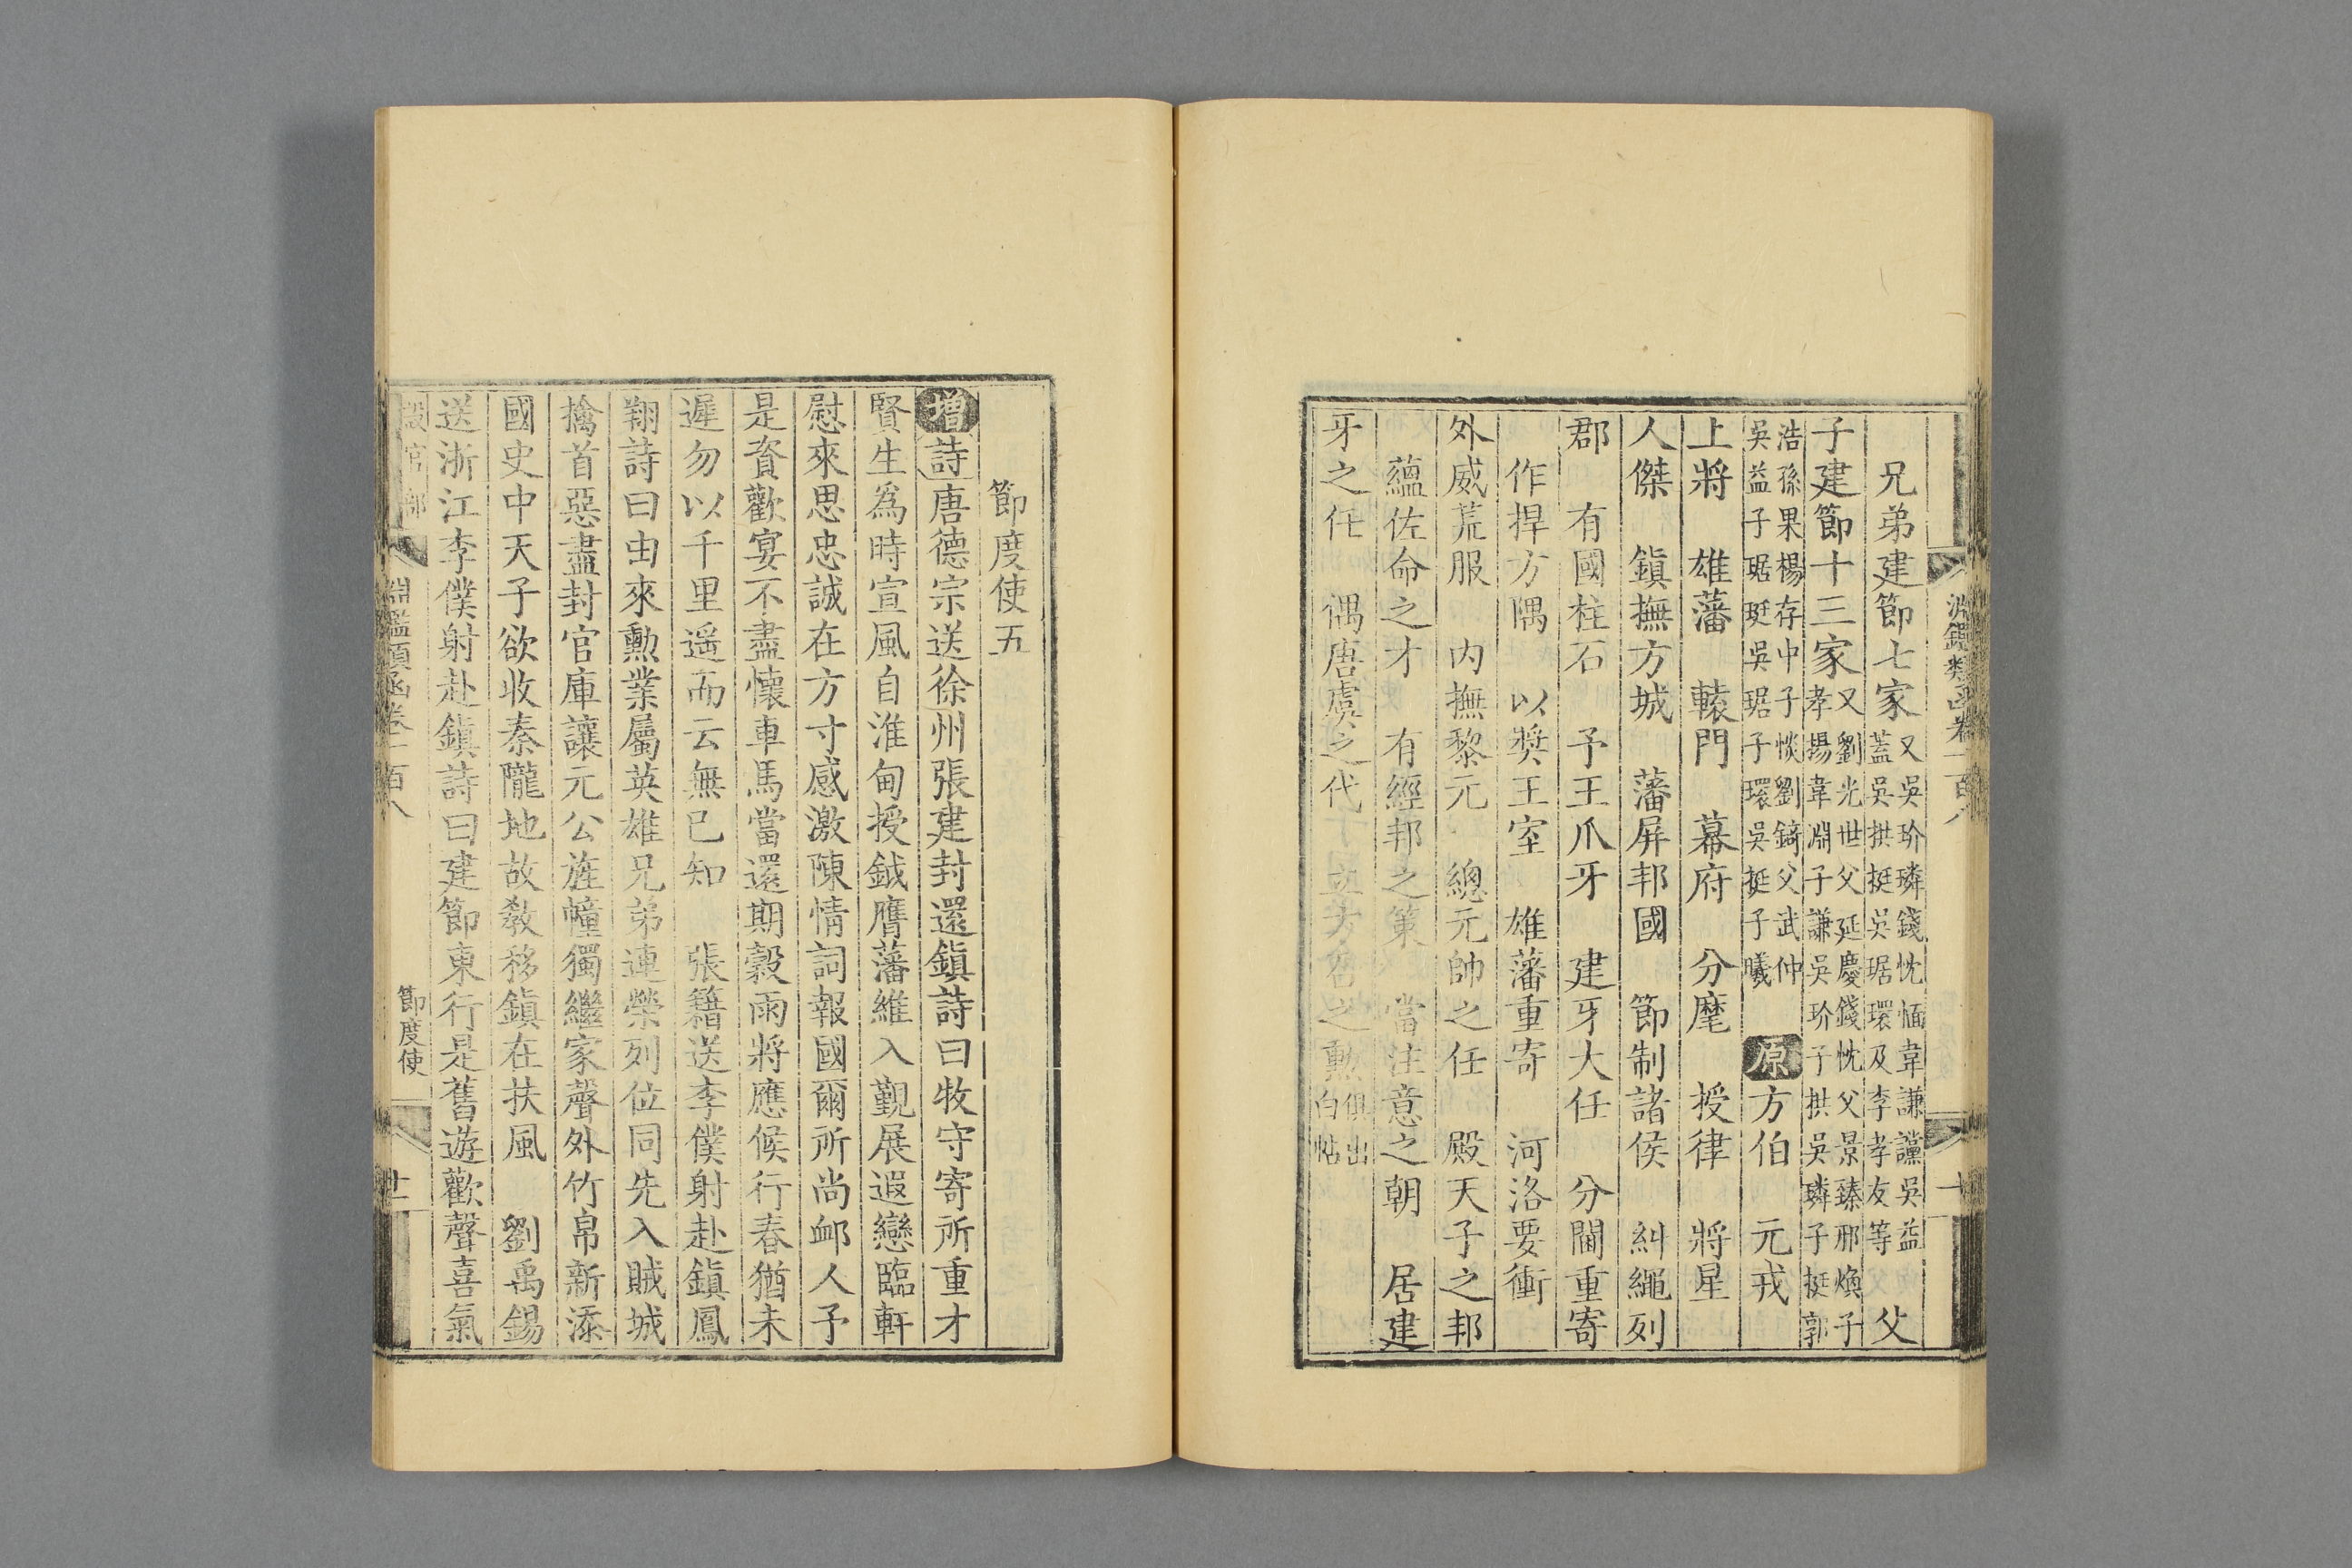 淵鑑類函卷一百八
兄弟建節七家 又吳玠璘錢忱愐韋謙讜吳益
蓋吳拱挺吳琚環及李孝友等 父
子建節十三家 又劉光世父延慶錢忱父景臻邢煥子
孝揚韋淵子謙吳玠子拱吳璘子挺郭
浩孫果楊存中子倓劉錡父武仲
吳益子琚珽吳琚子環吳挺子曦 原方伯 元戎
上將 雄藩 轅門 幕府 分麾 授律 將星
人傑 鎮撫方城 藩屏邦國 節制諸侯 糾繩列
郡 有國柱石 予王爪牙 建牙大任 分閫重寄
作捍方隅 以奬王室 雄藩重寄 河洛要衝
外威荒服 内撫黎元 總元帥之任 殿天子之邦
蘊佐命之才 有經邦之策 當注意之朝 居建
牙之任 偶唐虞之代 之勲 俱出
白帖
節度使五
增詩唐德宗送徐州張建封還鎮詩曰牧守寄所重才
賢生爲時宣風自淮甸授鉞膺藩維入覲展遐戀臨軒
慰來思忠誠在方寸感激陳情詞報國爾所尚䘏人予
是資歡宴不盡懷車馬當還期穀雨將應候行春猶未
遲勿以千里遥而云無已知 張籍送李僕射赴鎮鳳
翔詩曰由來勲業屬英雄兄弟連榮列位同先入賊城
擒首惡盡封官庫讓元公旌幢獨繼家聲外竹帛新添
國史中天子欲收秦隴地故敎移鎮在扶風 劉禹錫
送浙江李僕射赴鎮詩曰建節東行是舊遊歡聲喜氣
設官部 淵鑑類函卷一百八 節度使